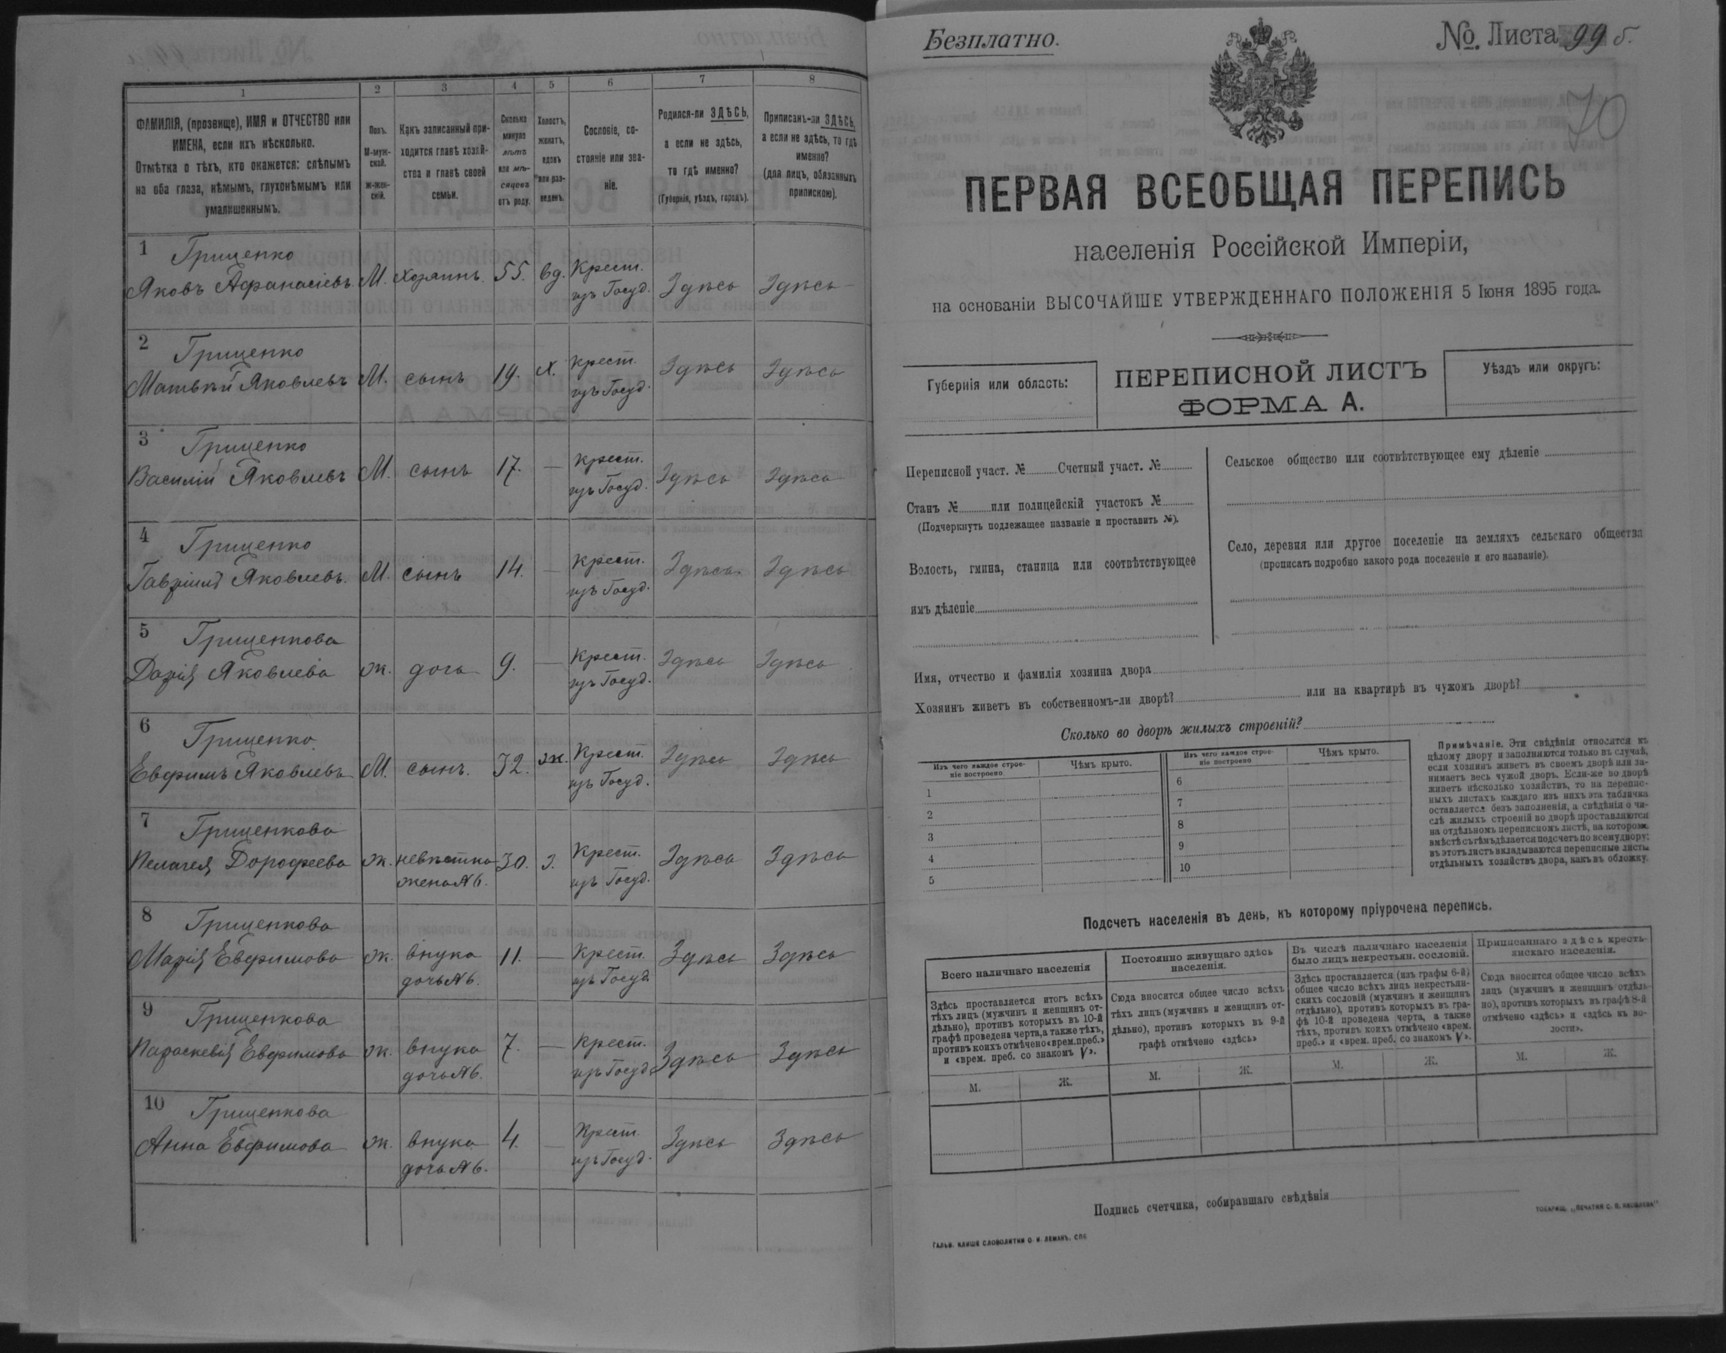 1 2 3 4 5 6 7 8
ФАМИЛІЯ, (прозвище), ИМЯ и ОТЧЕСТВО или
ИМЕНА, если ихъ нѣсколько.
Отмѣтка о тѣхъ, кто окажется: слѣпымъ
на оба глаза, нѣмымъ, глухонѣмымъ или
умалишеннымъ.
Полъ.
М-муж-
ской.
ж-жен-
скій.
Какъ записанный при-
ходится главѣ хозяй-
ства и главѣ своей
семьи.
Сколько
минуло
лѣтъ
или мѣ-
сяцевъ
отъ роду.
Холостъ,
женатъ,
вдовъ
или раз-
веденъ.
Сословіе, со-
стояніе или зва-
ніе.
Родился-ли ЗДѢСЬ,
а если не здѣсь,
то гдѣ именно?
(Губернія, уѣздъ, городъ).
Приписанъ-ли ЗДѢСЬ,
а если не здѣсь, то гдѣ
именно?
(для лицъ, обязанныхъ
припискою).
1 Гриценко
Яковъ Афанасіевъ М. Хозяинъ 55. вд. Крест. изъ Госуд. Здѣсь Здѣсь
2 Гриценко
Матвѣй Яковлевъ М. сынъ 19. х. Крест. изъ Госуд. Здѣсь Здѣсь
3 Гриценко
Василій Яковлевъ М. сынъ 17. — Крест. изъ Госуд. Здѣсь Здѣсь
4 Гриценко
Гавріилъ Яковлевъ. М. сынъ 14. — Крест. изъ Госуд. Здѣсь Здѣсь
5 Гриценкова
Дарія Яковлева ж. дочь 9. — Крест. изъ Госуд. Здѣсь Здѣсь
6 Гриценко
Евфимъ Яковлевъ М. сынъ. 32. ж. Крест. изъ Госуд. Здѣсь Здѣсь
7 Гриценкова
Пелагея Дорофеева ж. невѣстка жена №6. 30. з. Крест. изъ Госуд. Здѣсь Здѣсь
8 Гриценкова
Марія Евфимова ж. внука дочь №6. 11. — Крест. изъ Госуд Здѣсь Здѣсь
9 Гриценкова
Параскевія Евфимова ж. внука дочь №6. 7. — Крест. изъ Госуд Здѣсь Здѣсь
10 Гриценкова
Анна Евфимова ж. внука дочь №6. 4. — Крест. изъ Госуд. Здѣсь Здѣсь
Безплатно. №. Листа 99 б.
70
ПЕРВАЯ ВСЕОБЩАЯ ПЕРЕПИСЬ
населенія Россійской Имперіи,
на основаніи ВЫСОЧАЙШЕ УТВЕРЖДЕННАГО ПОЛОЖЕНІЯ 5 Іюня 1895 года.
Губернія или область:
ПЕРЕПИСНОЙ ЛИСТЪ
ФОРМА А.
Уѣздъ или округъ:
Переписной участ. № Счетный участ. №
Станъ № или полицейскій участокъ №
(Подчеркнуть подлежащее названіе и проставить №).
Волость, гмина, станица или соотвѣтствующее
имъ дѣленіе
Сельское общество или соотвѣтствующее ему дѣленіе
Село, деревня или другое поселеніе на земляхъ сельскаго общества
(прописать подробно какого рода поселеніе и его названіе).
Имя, отчество и фамилія хозяина двора
Хозяинъ живетъ въ собственномъ-ли дворѣ? или на квартирѣ въ чужомъ дворѣ?
Сколько во дворѣ жилыхъ строеній?
Изъ чего каждое строе-
ніе построено.
Чѣмъ крыто.
Изъ чего каждое строе-
ніе построено
Чѣмъ крыто.
1 6
2 7
3 8
4 9
5 10
Примѣчаніе. Эти свѣдѣнія относятся къ
цѣлому двору и заполняются только въ случаѣ,
если хозяинъ живетъ въ своемъ дворѣ или за-
нимаетъ весь чужой дворъ. Если-же во дворѣ
живетъ нѣсколько хозяйствъ, то на перепис-
ныхъ листахъ каждаго изъ нихъ эта табличка
оставляется безъ заполненія, а свѣдѣнія о чи-
слѣ жилыхъ строеній во дворѣ проставляются
на отдѣльномъ переписномъ листѣ, на которомъ
вмѣстѣ съ тѣмъ дѣлается подсчетъ по всему двору;
въ этотъ листъ вкладываются переписные листы
отдѣльныхъ хозяйствъ двора, какъ въ обложку.
Подсчетъ населенія въ день, къ которому пріурочена перепись.
Всего наличнаго населенія
Здѣсь проставляется итогъ всѣхъ
тѣхъ лицъ (мужчинъ и женщинъ от-
дѣльно), противъ которыхъ въ 10-й
графѣ проведена черта, а также тѣхъ,
противъ коихъ отмѣчено «врем. преб.»
и «врем. преб. со знакомъ V».
Постоянно живущаго здѣсь
населенія.
Сюда вносится общее число всѣхъ
тѣхъ лицъ (мужчинъ и женщинъ от-
дѣльно), противъ которыхъ въ 9-й
графѣ отмѣчено «здѣсь»
Въ числѣ наличнаго населенія
было лицъ некрестьян. сословій.
Здѣсь проставляется (изъ графы 6-й)
общее число всѣхъ лицъ некрестьян-
скихъ сословій (мужчинъ и женщинъ
отдѣльно), противъ которыхъ въ гра-
фѣ 10-й проведена черта, а также
тѣхъ, противъ коихъ отмѣчено «врем.
преб.» и «врем. преб. со знакомъ V».
Приписаннаго здѣсь кресть-
янскаго населенія.
Сюда вносится общее число всѣхъ
лицъ (мужчинъ и женщинъ отдѣль-
но), противъ которыхъ въ графѣ 8-й
отмѣчено «здѣсь» и «здѣсь въ во-
лости».
М. Ж. М. Ж. М. Ж. М. Ж.
Подпись счетчика, собиравшаго свѣдѣнія
ГАЛЬВ. КЛИШЕ СЛОВОЛИТНИ О. И. ЛЕМАНЪ, СПБ
ТОВАРИЩ. „ПЕЧАТНЯ С. П. ЯКОВЛЕВА"